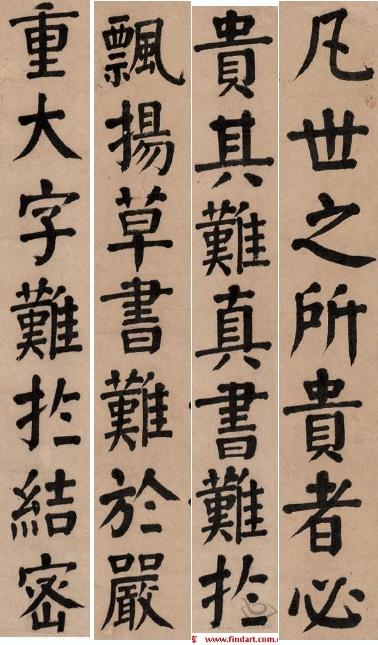 凡世之所貴者必
貴其難真書難於
飄揚草書難於嚴
重大字難於結密
www.findart.com